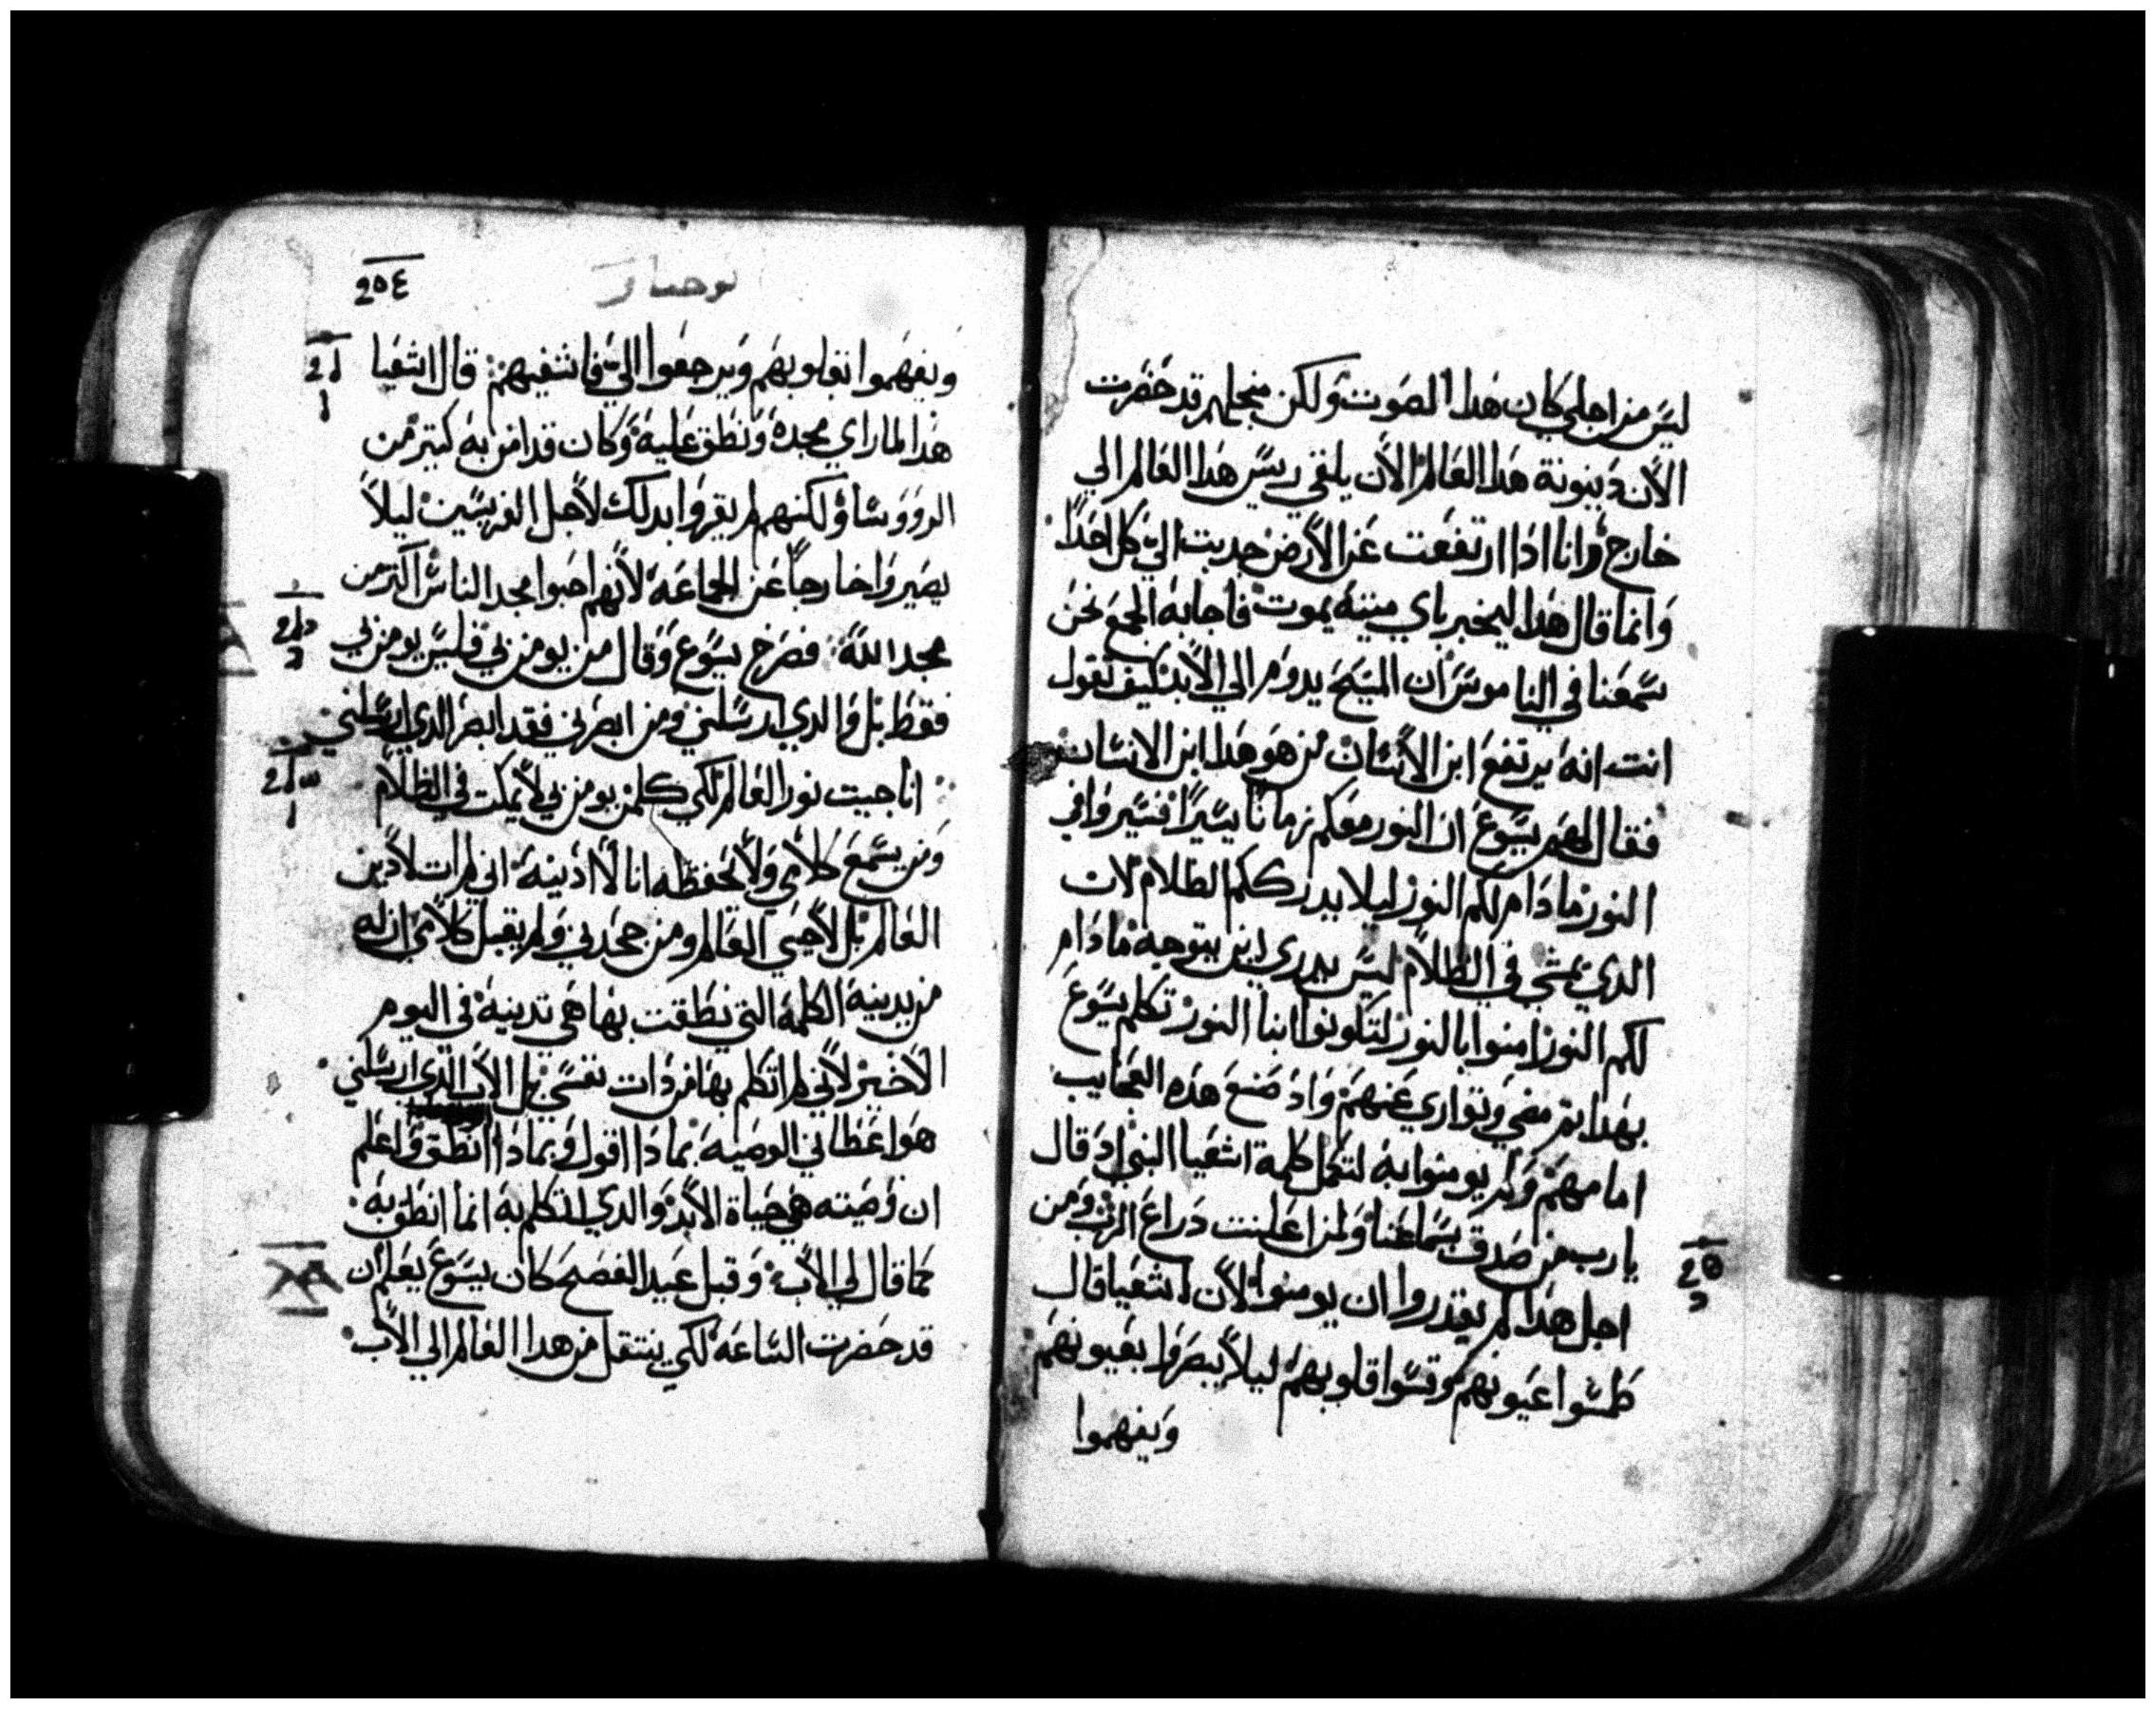 ليس من اجلي كان هدا الصوت ولكن منجلهم قد حضرت
الأن دينونة هدا العالم الأن يلقي ريس هدا العالم الي
خارج وانا ادا ارتفعت عن الأرض جدبت الي كل احدًا
وانما قال هدا ليخبر باي ميتة يموت فاجابه الجمع نحن
سمعنا في الناموس ان المسيح يدوم الي الأبد كيف تقول
انت انه يرتفع ابن الأنسان من هو هدا ابن الانسان
فقال لهم يسوع ان النور معكم زمانًا يسيرًا فسيروا في
النور ما دام لكم النور ليلا يدرككم الظلام لان
الدي يمشي في الظلام ليس يدري اين يتوجه ما دام
لكم النور امنوا بالنور لتكونوا ابنا النور تكلم يسوع
بهدا تم مضي وتواري عنهم واد صنع هده العجايب
امامهم ولم يومنوا به لتكمل كلمة اشعيا النبي اد قال
يارب من صدق سماعنا ولمن اعلنت دراع الرب ومن
اجل هدا لم يقدروا ان يومنوا لأن اشعيا قال
طمسوا عيونهم وقسوا قلوبهم ليلاً يبصروا بعيونهم
ويفهموا
يوحنا
ويفهموا بقلوبهم ويرجعوا الي فاشفيهم قال اشعيا
هدا لما راي مجده ونطق عليه وكان قد امن به كتير من
الروو سا ولكنهم لم يقروا بدلك لأجل الفريسين ليلاً
يصيروا خارجاً عن الجماعة لأنهم احبوا مجد الناس اكتر من
مجد الله فصرخ يسوع وقال من يومن بي فليس يومن بي
فقط بل والدي ارسلني ومن ابصرني فقد ابصر الدي ارسلني
انا جيت نور العالم لكي كلمن يومن بي لأيمكت في الظلام
ومن يسمع كلامي ولأ يحفظه انا لأ ادينه اني لم ات لادين
العالم بل لأحيي العالم ومن جحدني ولم يقبل كلأمي ان له
من يدينه الكلمة التي نطقت بها هي تدينه في اليوم
الأخير لأني لم اتكلم بها من دات نفسي بل الأب الدي ارسلني
هو اعطاني الوصية بمادا اقول وبمادا انطق واعلم
ان وصيته هي حياة الأبد والدي اتكلم به انما انطق به
كما قال لي الأب وقبل عيد الفصح كان يسوع يعلم ان
قد حضرت الساعة لكي ينتقل من هدا العالم الي الأب